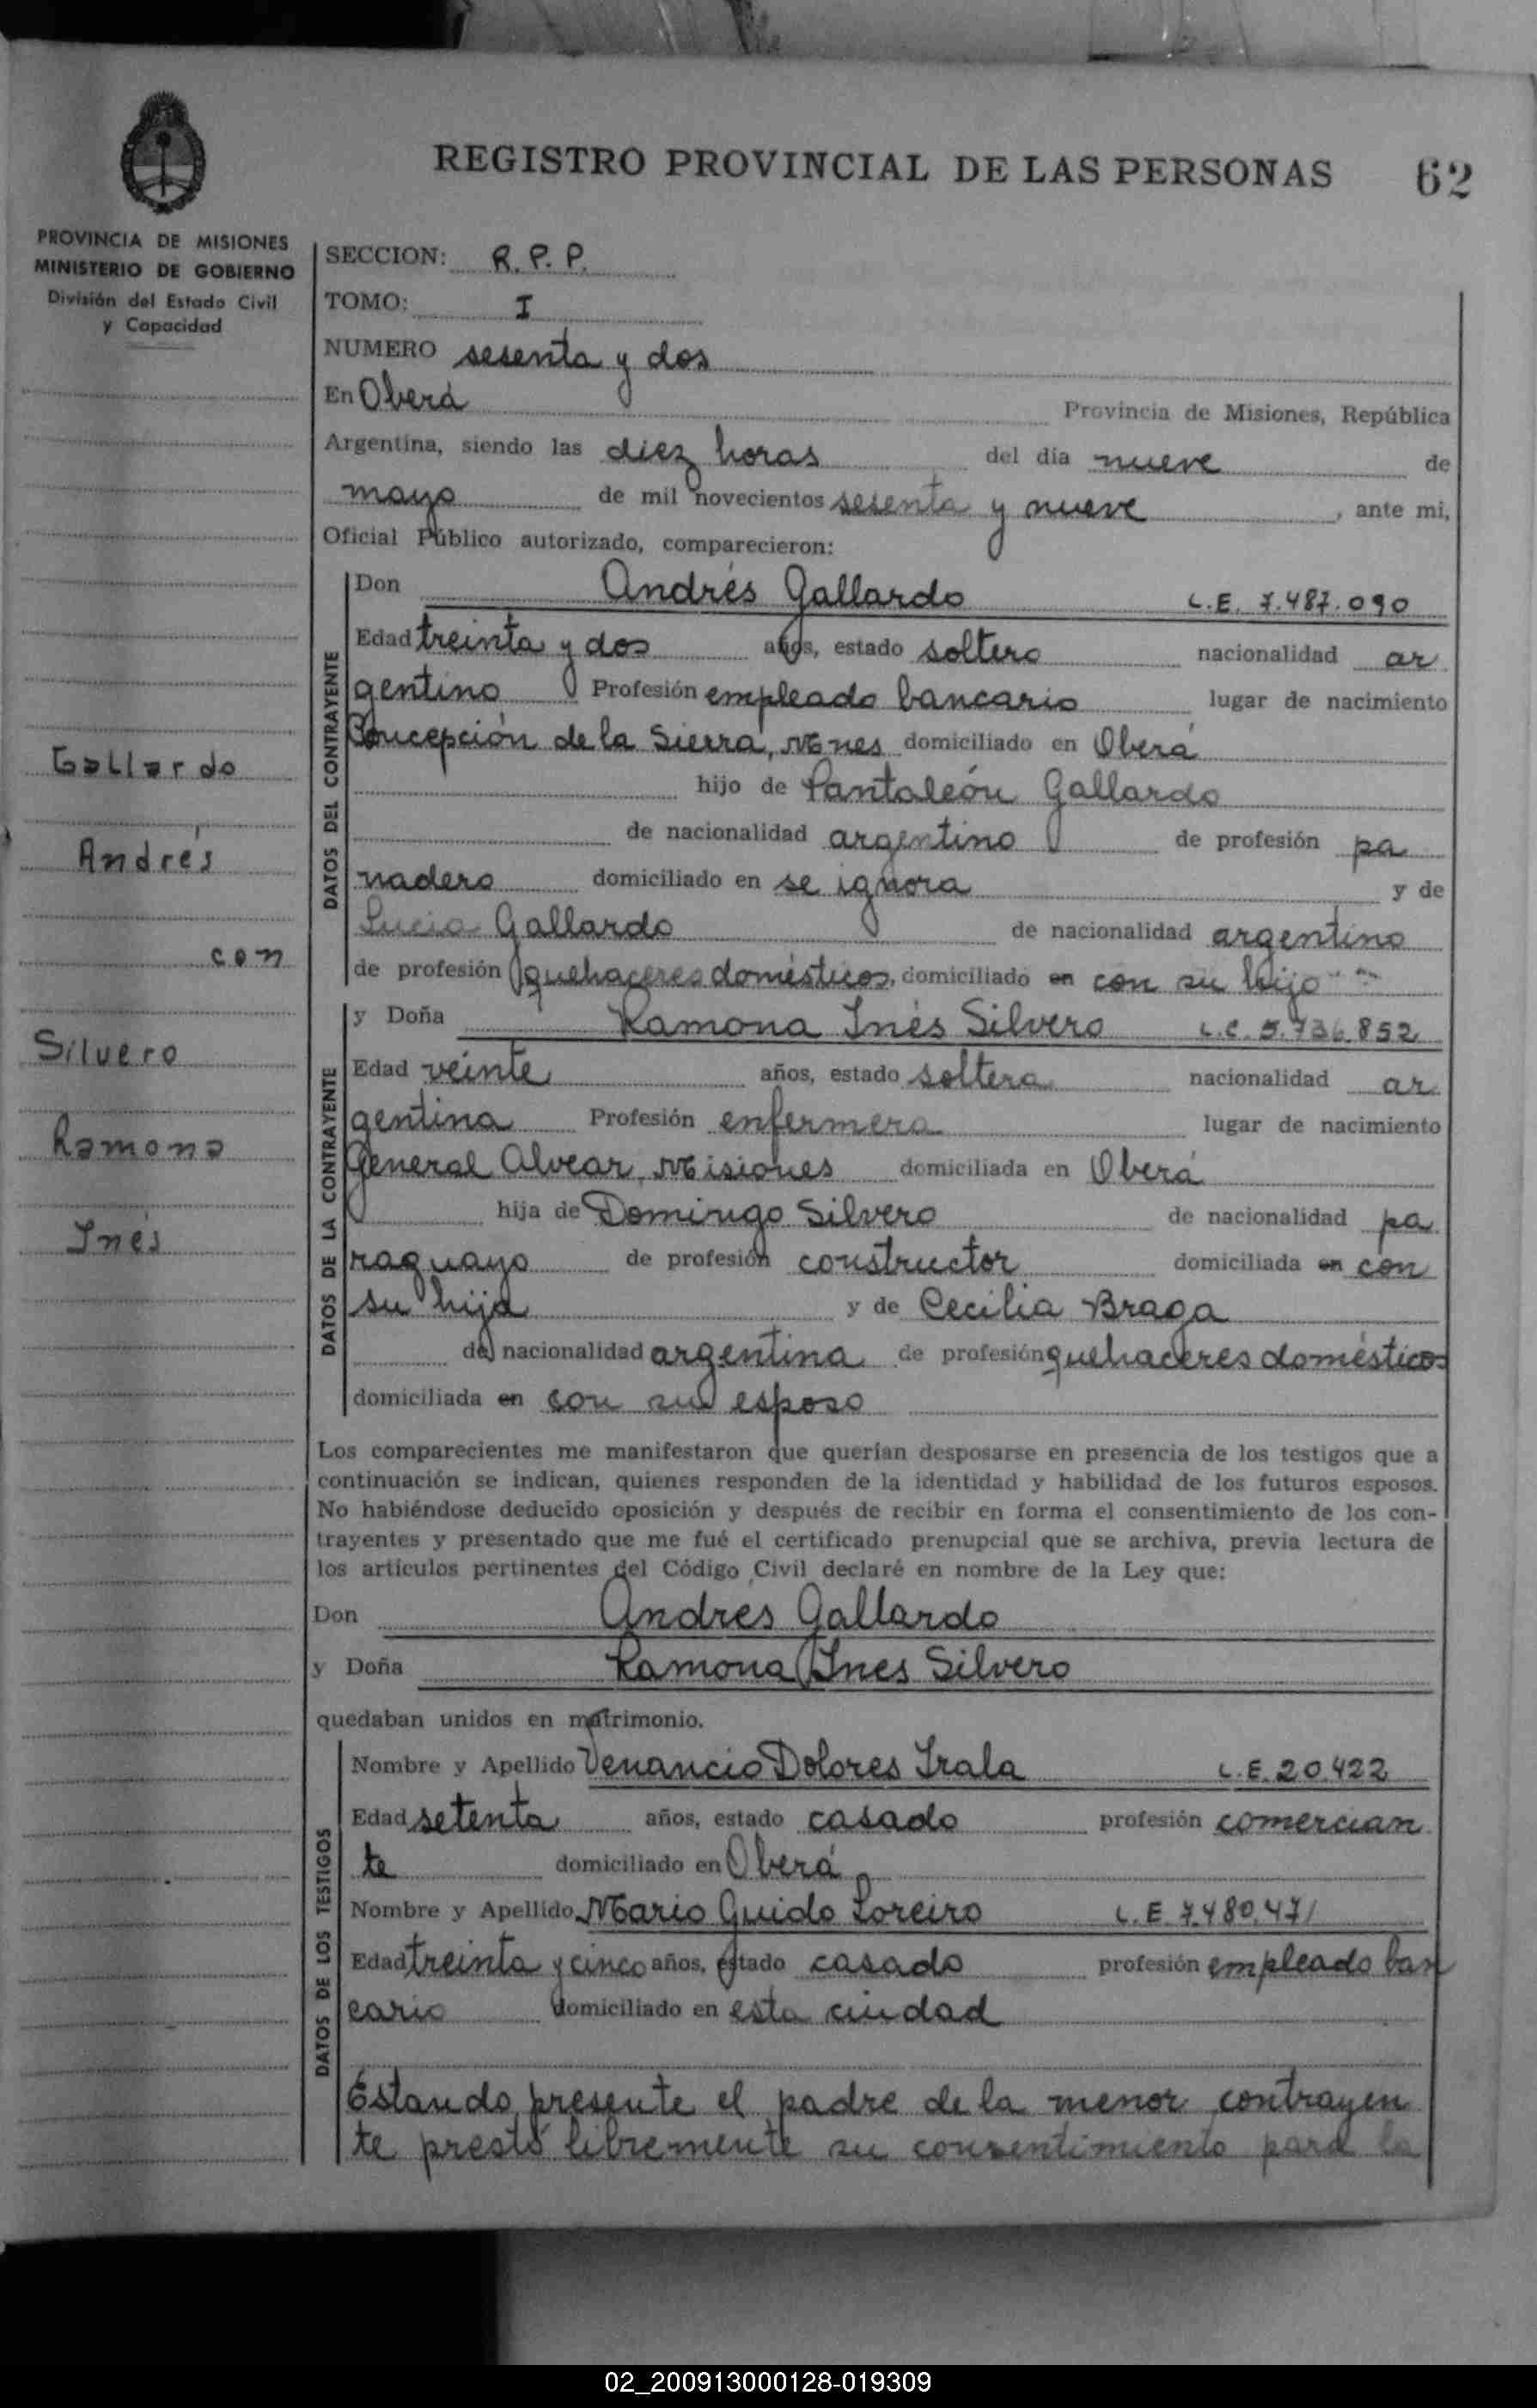 REGISTRO PROVINCIAL DE LAS PERSONAS 62
PROVINCIA DE MISIONES
MINISTERIO DE GOBIERNO
División del Estado Civil
y Capacidad
Gallardo
Andrés
con
Silvero
Ramona
Inés
SECCION: R. P. P.
TOMO: I
NUMERO sesenta y dos
En Oberá Provincia de Misiones, República
Argentina, siendo las diez horas del día nueve de
mayo de mil novecientos sesenta y nueve, ante mi,
Oficial Público autorizado, comparecieron:
DATOS DEL CONTRAYENTE
Don Andrés Gallardo L.E. 7.487.090
Edad treinta y dos años, estado soltero nacionalidad ar
gentino Profesión empleado bancario lugar de nacimiento
Concepción de la Sierra, Mnes domiciliado en Oberá
hijo de Pantaleón Gallardo
de nacionalidad argentino de profesión pa
nadero domiciliado en se ignora y de
Lucia Gallardo de nacionalidad argentino
de profesión quehaceres domésticos, domiciliado en con su hijo
DATOS DE LA CONTRAYENTE
y Doña Ramona Inés Silvero L.C. 5.736.852
Edad veinte años, estado soltera nacionalidad ar
gentina Profesión enfermera lugar de nacimiento
General Alvear, Misiones domiciliada en Oberá
hija de Domingo Silvero de nacionalidad pa
raguayo de profesión constructor domiciliada en con
su hija y de Cecilia Braga
de nacionalidad argentina de profesión quehaceres domésticos
domiciliada en con su esposo
Los comparecientes me manifestaron que querían desposarse en presencia de los testigos que a
continuación se indican, quienes responden de la identidad y habilidad de los futuros esposos.
No habiéndose deducido oposición y después de recibir en forma el consentimiento de los con-
trayentes y presentado que me fué el certificado prenupcial que se archiva, previa lectura de
los artículos pertinentes del Código Civil declaré en nombre de la Ley que:
Don Andres Gallardo
y Doña Ramona Ines Silvero
quedaban unidos en matrimonio.
DATOS DE LOS TESTIGOS
Nombre y Apellido Venancio Dolores Irala L.E. 20.422
Edad setenta años, estado casado profesión comercian
te domiciliado en Oberá
Nombre y Apellido Mario Guido Loreiro L.E 7.480.471
Edad treinta y cinco años, estado casado profesión empleado ban
cario domiciliado en esta ciudad
Estando presente el padre de la menor contrayen
te prestó libremente su consentimiento para la
02_200913000128-019309